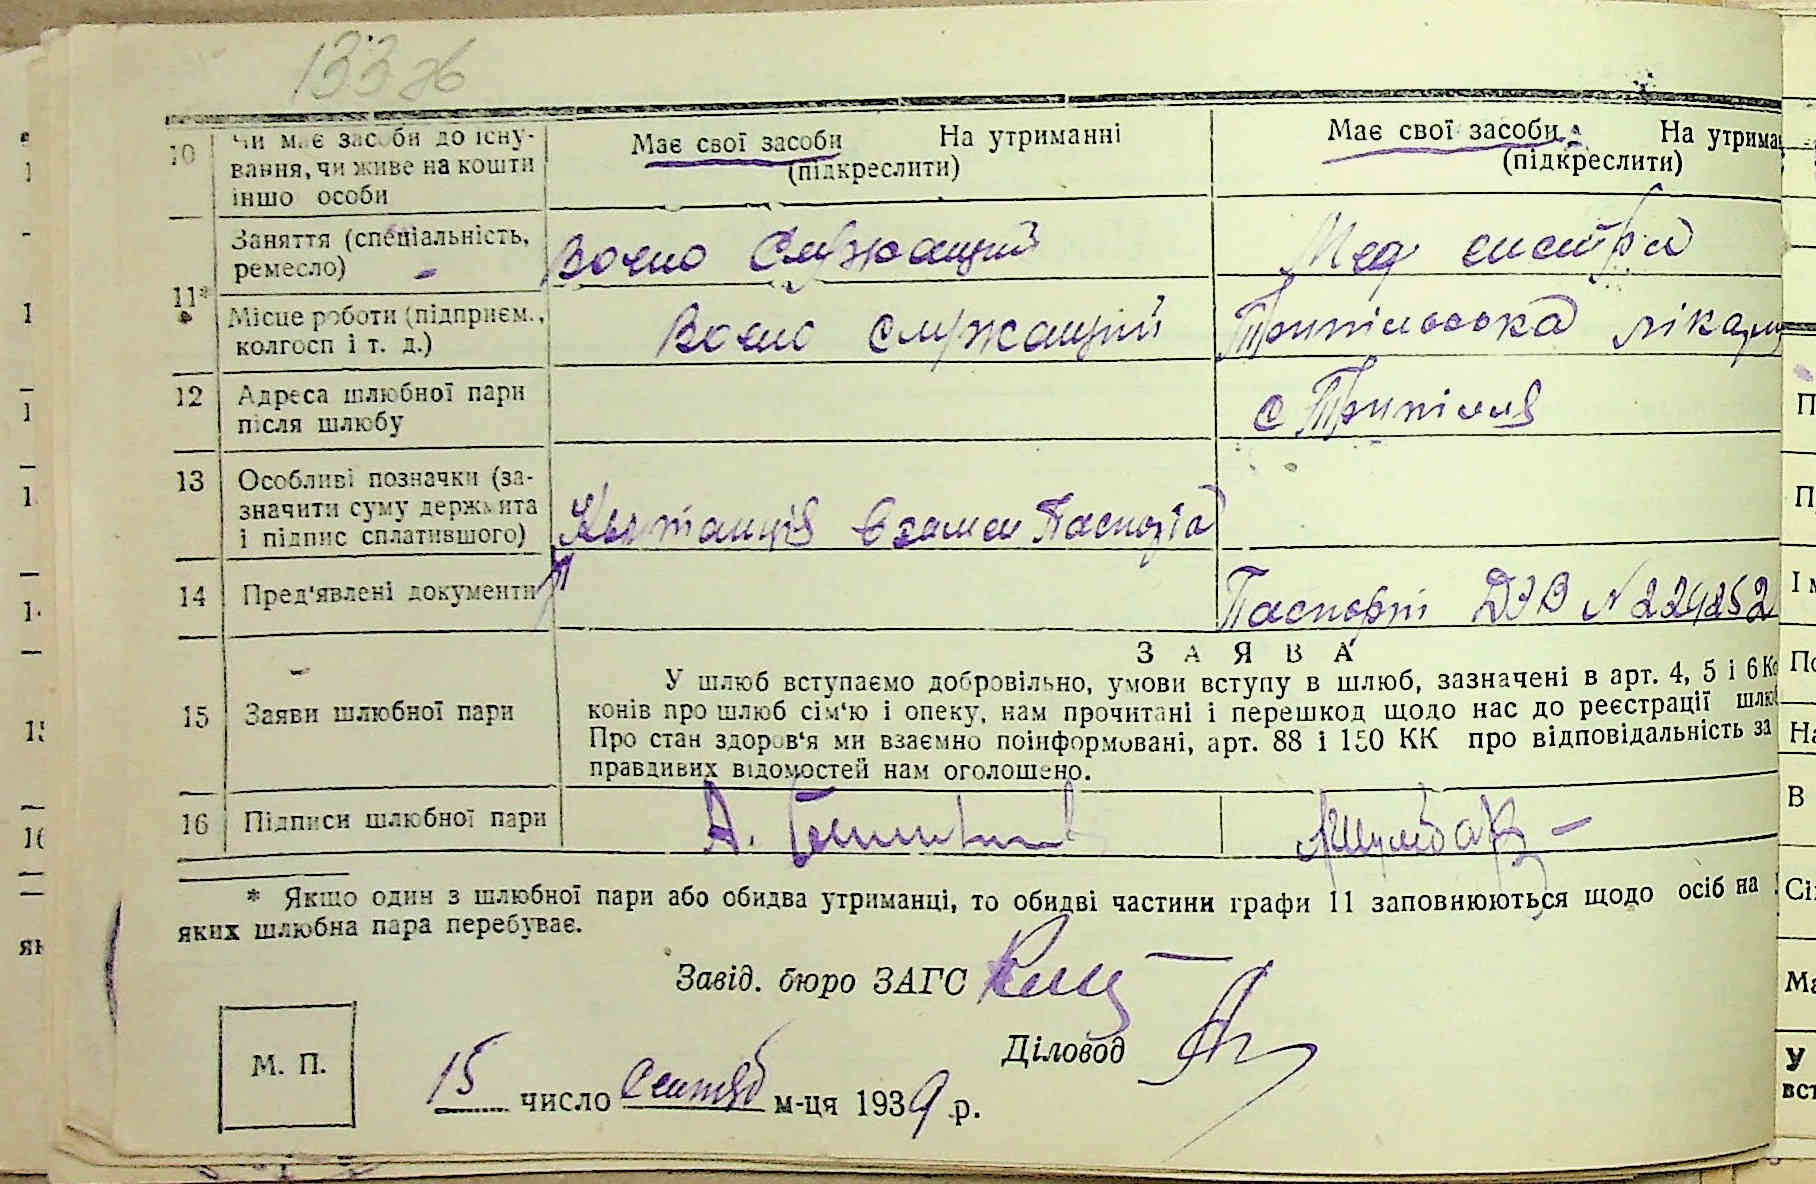 133 зв
10 Чи має засоби до існу- Має свої засоби На утриманні Має свої засоби На утрима
вання, чи живе на кошти (підкреслити) (підкреслити)
іншо особи
Заняття (спеціальність, Воено Служащий Мед систра
ремесло)
11*
Місце роботи (підприєм., Воено Служащий Трипільська лікар
колгосп і т. д.)
12 Адреса шлюбної пари с Трипілля
після шлюбу
13 Особливі позначки (за-
значити суму держмита Квитанція взамен Паспорта
і підпис сплатившого)
14 Пред'явлені документи Паспорт ДЭВ № 224252
З А Я В А
У шлюб вступаємо добровільно, умови вступу в шлюб, зазначені в арт. 4, 5 і 6 Ко
15 Заяви шлюбної пари конів про шлюб сім'ю і опеку, нам прочитані і перешкод щодо нас до реєстрації шлю
Про стан здоров'я ми взаємно поінформовані, арт. 88 і 150 КК про відповідальність за
правдивих відомостей нам оголошено.
16 Підписи шлюбної пари А.
* Якщо один з шлюбної пари або обидва утриманці, то обидві частини графи 11 заповнюються щодо осіб на
яких шлюбна пара перебуває.
Завід. бюро ЗАГС
Діловод
М. П.
15 число Сентяб м-ця 1939 р.